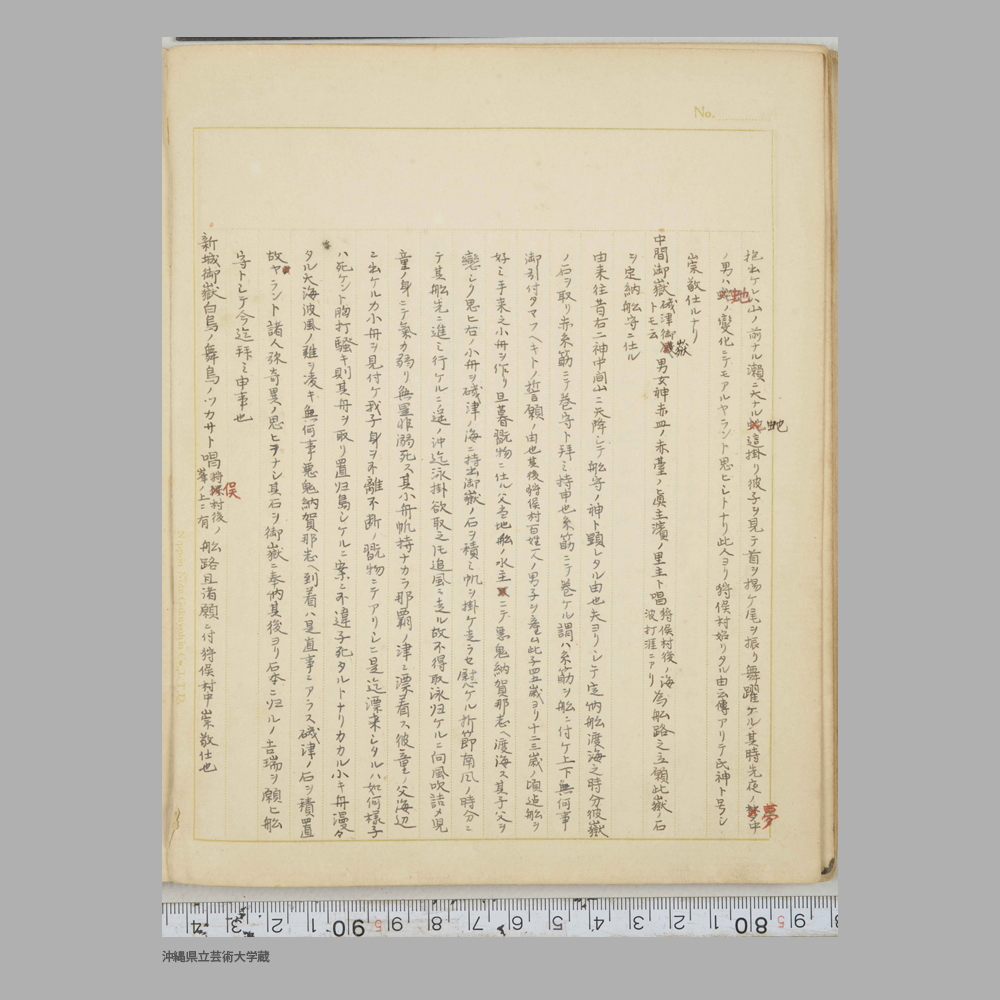 No.
抱出ケレハ山ノ前ナル瀬ニ大ナル虵這掛リ彼子ヲ見テ首ヲ揚ケ尾ヲ振リ舞躍ケル其時先夜ノ夢中
ノ男ハ虵ノ変化ニテモアルヤラント思ヒシトナリ此人ヨリ狩俣村始リタル由云傳アリテ氏神ト号シ
崇敬仕ルナリ
中間御嶽 磯津御嶽トモ云 男女神赤皿ノ赤臺ノ真主濱ノ里主ト唱 狩俣村後ノ海波打涯ニアリ 為舩路之立願此嶽ノ石
ヲ定納舩守ニ仕ル
由来往昔右二神中間山ニ天降シテ舩守ノ神ト顕レタル由也夫ヨリシテ定納舩渡海之時分彼嶽
ノ石ヲ取リ赤糸筋ニテ巻守ト拜ミ持申也糸筋ニテ巻ケル謂ハ糸筋ヲ舩ニ付ケ上下無何事
御引付タマフヘキトノ誓願ノ由也其後狩俣村百姓一人ノ男子ヲ産ム此子四五歳ヨリ十二三歳ノ頃迄舩ヲ
好ミ手来之小舟ヲ作リ旦暮翫物ニ仕ル父当地舩ノ水主ニテ悪鬼納賀那志ヘ渡海ス其子父ヲ
戀シク思ヒ右ノ小舟ヲ磯津ノ海ニ持出御嶽ノ石ヲ積ミ帆ヲ掛ケ走ラセ慰ケル折節南風ノ時分ニ
テ其舩先ニ進ミ行ケルニ遥ノ沖迄泳掛欲取之庀追風ニ走ル故不得取泳归ケルニ向風吹詰メ児
童ノ身ニテ氣力弱リ無罣非溺死ス其小舟帆持ナカラ那覇ノ津ニ漂着ス彼童ノ父海辺
ニ出ケルカ小舟ヲ見付ケ我子身ヲ不離不断ノ翫物ニテアリシニ是迄漂来シタルハ如何様子
ハ死ケント胸打騒キ則其舟ヲ取リ置归島シケルニ案ニ不違子死タルトナリカカル小キ舟漫々
タル大海波風ノ難ヲ凌キ無何事悪鬼納賀那志ヘ到着ハ是直事ニアラス磯津ノ石ヲ積置
故ヤラント諸人弥奇異ノ思ヒヲナシ其石ヲ御嶽ニ奉納其後ヨリ石本ニ归ルノ吉瑞ヲ願ヒ舩
守トシテ今迄拜ミ申事也
新城御嶽白鳥ノ舞鳥ノツカサト唱 狩俣村後ノ峯ノ上ニ有 舩路且渚願ニ付狩俣村中崇敬仕也
4 3 2 1 90 9 8 7 6 5 4 3 2 1 80 9 8
沖縄県立芸術大学蔵